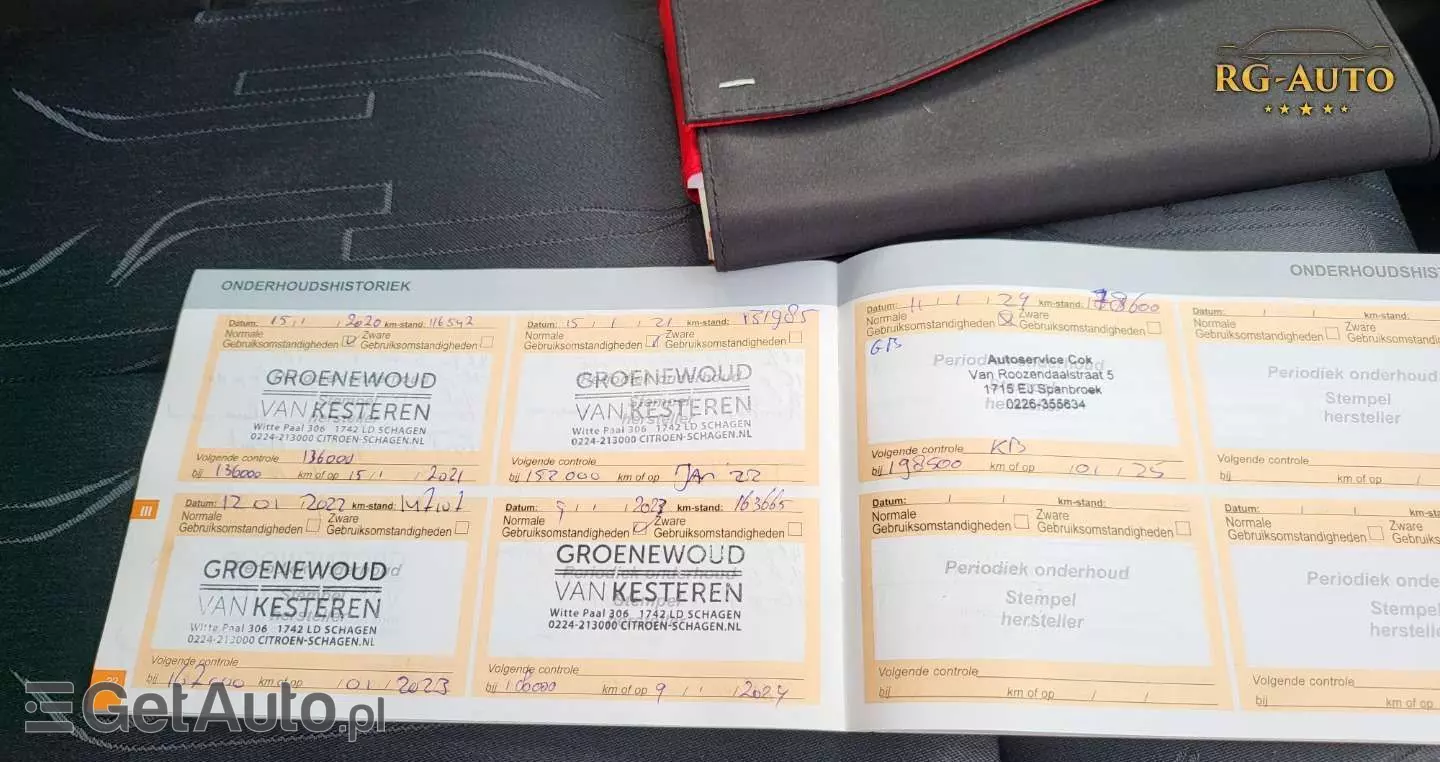 RG-AUTO
ONDERHOUDSHISTORIEK
Datum: 15 / 1 / 2020 km-stand: 116542
Normale Gebruiksomstandigheden Zware Gebruiksomstandigheden
GROENEWOUD
VAN KESTEREN
Witte Paal 306 1742 LD SCHAGEN
0224-213000 CITROEN-SCHAGEN.NL
Volgende controle 136000
bij 136000 km of op 15 / 1 / 2021
Datum: 15 / 1 / 21 km-stand: 131985
Normale Gebruiksomstandigheden Zware Gebruiksomstandigheden
GROENEWOUD
VAN KESTEREN
Witte Paal 306 1742 LD SCHAGEN
0224-213000 CITROEN-SCHAGEN.NL
Volgende controle
bij 152000 km of op Jan '22
Datum: 12 01 / 2022 km-stand:
Normale Gebruiksomstandigheden Zware Gebruiksomstandigheden
GROENEWOUD
VAN KESTEREN
Witte Paal 306 1742 LD SCHAGEN
0224-213000 CITROEN-SCHAGEN.NL
Volgende controle
bij km of op / 01 / 2023
III
Datum: 9 / 1 / km-stand: 163665
Normale Gebruiksomstandigheden Zware Gebruiksomstandigheden
GROENEWOUD
VAN KESTEREN
Witte Paal 306 1742 LD SCHAGEN
0224-213000 CITROEN-SCHAGEN.NL
Volgende controle
bij km of op 9 / / 2024
22
ONDERHOUDSHIST
Datum: 11 / 1 / 24 km-stand: 178600
Normale Gebruiksomstandigheden Zware Gebruiksomstandigheden
GB
Autoservice Cok
Van Roozendaalstraat 5
1715 EJ Spanbroek
0226-355634
Volgende controle KB
bij 198500 km of op / 01 / 25
Datum: / / km-stand:
Normale Gebruiksomstandigheden Zware Gebruiksomstandig
Periodiek onderhoud
Stempel
hersteller
Volgende controle
bij km of op /
Datum: / / km-stand:
Normale Gebruiksomstandigheden Zware Gebruiksomstandigheden
Periodiek onderhoud
Stempel
hersteller
Volgende controle
bij km of op / /
Datum: / / km-sta
Normale Gebruiksomstandigheden Zware Gebruiks
Periodiek onde
Stempel
herstelle
Volgende controle
bij km of op
GetAuto.pl